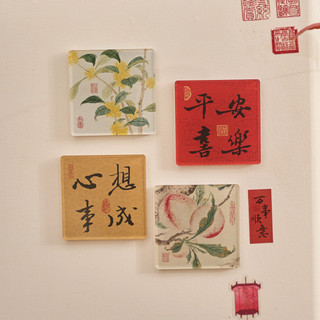 平安
喜樂
心想
事成
百事順意